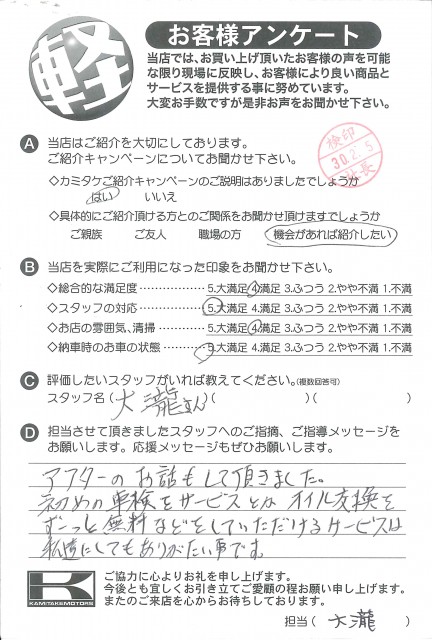 軽
お客様アンケート
当店では、お買い上げ頂いたお客様の声を可能
な限り現場に反映し、お客様により良い商品と
サービスを提供する事に努めています。
大変お手数ですが是非お声をお聞かせ下さい。
A 当店はご紹介を大切にしております。
ご紹介キャンペーンについてお聞かせ下さい。
検印
30.2.5
社長
◇カミタケご紹介キャンペーンのご説明はありましたでしょうか
はい いいえ
◇具体的にご紹介頂ける方とのご関係をお聞かせ頂けますでしょうか
ご親族 ご友人 職場の方 機会があれば紹介したい
B 当店を実際にご利用になった印象をお聞かせ下さい。
◇総合的な満足度 5.大満足 4.満足 3.ふつう 2.やや不満 1.不満
◇スタッフの対応 5.大満足 4.満足 3.ふつう 2.やや不満 1.不満
◇お店の雰囲気、清掃 5.大満足 4.満足 3.ふつう 2.やや不満 1.不満
◇納車時のお車の状態 5.大満足 4.満足 3.ふつう 2.やや不満 1.不満
C 評価したいスタッフがいれば教えてください。(複数回答可)
スタッフ名(大瀧さん)( )( )
D 担当させて頂きましたスタッフへのご指摘、ご指導メッセージを
お願いします。応援メッセージもぜひお願いします。
アフターのお話もして頂きました。
初めの車検をサービスとかオイル交換を
ずーっと無料などをしていただけるサービスは
私達にしてもありがたい事です。
K
KAMITAKE MOTORS
ご協力に心よりお礼を申し上げます。
今後とも宜しくお引き立てご愛顧の程お願い申し上げます。
またのご来店を心からお待ちしております。
担当(大瀧)